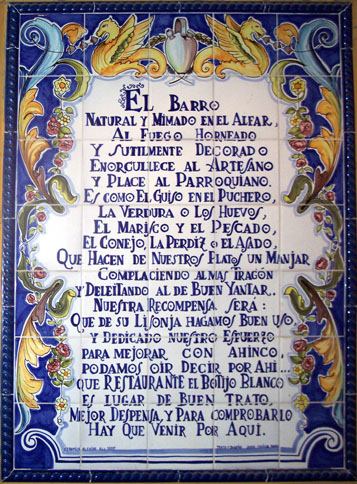 El Barro
Natural y Mimado en el Alfar,
Al Fuego Horneado
Y Sutilmente Decorado
Enorgullece al Artesano
y Place al Parroquiano.
Es como El Guiso en el Puchero,
La Verdura o Los Huevos,
El Marisco y el Pescado,
El Conejo, La Perdiz o el Asado,
Que Hacen de Nuestros Platos un Manjar
Complaciendo al mas Tragón
y Deleitando al de Buen Yantar.
Nuestra Recompensa será:
Que de su Lisonja hagamos Buen Uso
y Dedicado nuestro Esfuerzo
para mejorar con Ahínco,
podamos oir Decir por Ahí...
que Restaurante el Botijo Blanco
es lugar de Buen Trato,
Mejor Despensa, y Para Comprobarlo
Hay que Venir Por Aquí.